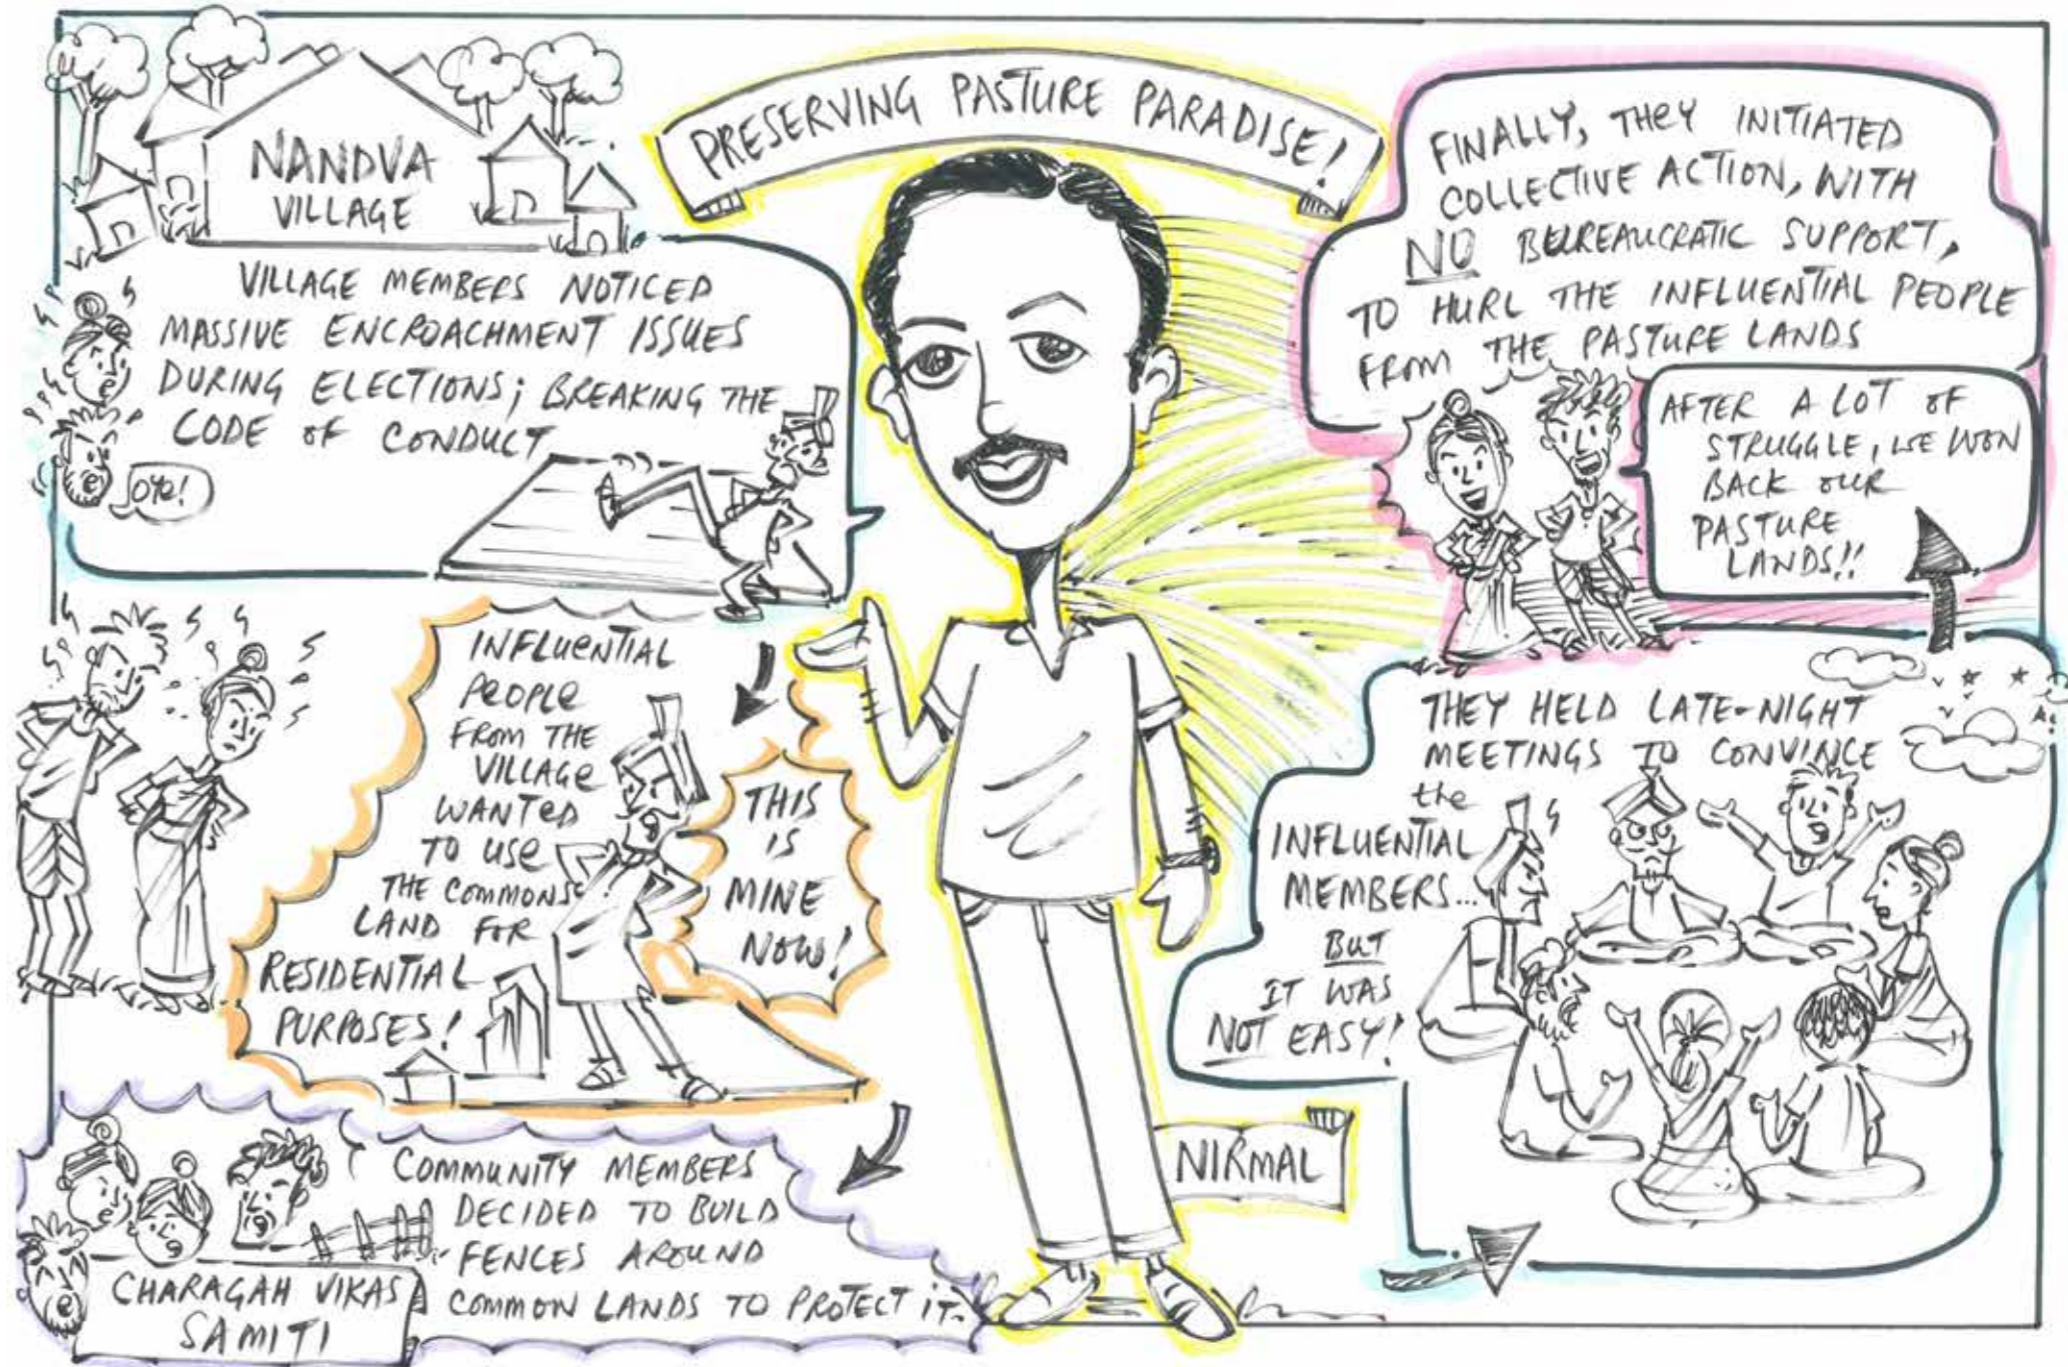 PRESERVING PASTURE PARADISE!
NANDVA
VILLAGE
VILLAGE MEMBERS NOTICED
MASSIVE ENCROACHMENT ISSUES
DURING ELECTIONS; BREAKING THE
CODE OF CONDUCT
INFLUENTIAL
PEOPLE
FROM THE
VILLAGE
WANTED
TO USE
THE COMMONS
LAND FOR
RESIDENTIAL
PURPOSES!
THIS
IS
MINE
NOW!
COMMUNITY MEMBERS
DECIDED TO BUILD
FENCES AROUND
COMMON LANDS TO PROTECT IT.
CHARAGAH VIKAS
SAMITI
NIRMAL
THEY HELD LATE-NIGHT
MEETINGS TO CONVINCE
the
INFLUENTIAL
MEMBERS...
BUT
IT WAS
NOT EASY!
FINALLY, THEY INITIATED
COLLECTIVE ACTION, WITH
NO BEUREAUCRATIC SUPPORT,
TO HURL THE INFLUENTIAL PEOPLE
FROM THE PASTURE LANDS
AFTER A LOT OF
STRUGGLE, WE WON
BACK OUR
PASTURE
LANDS!!